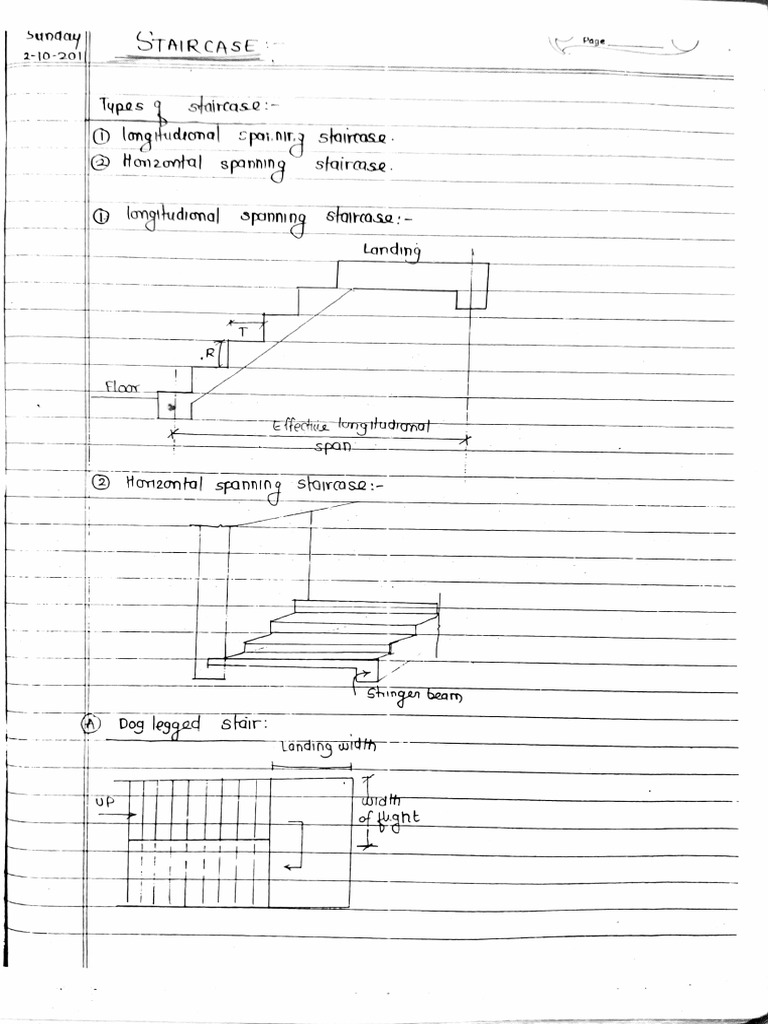 Sunday
2-10-201
STAIRCASE:-
Page
Types of staircase:-
① longitudional spanning staircase.
② Horizontal spanning staircase.
① longitudional spanning staircase:-
Landing
T
R
Floor
Effective longitudional
span
② Horizontal spanning staircase:-
Stringer beam
Ⓐ Dog legged stair:
Landing width
UP
width
of flight